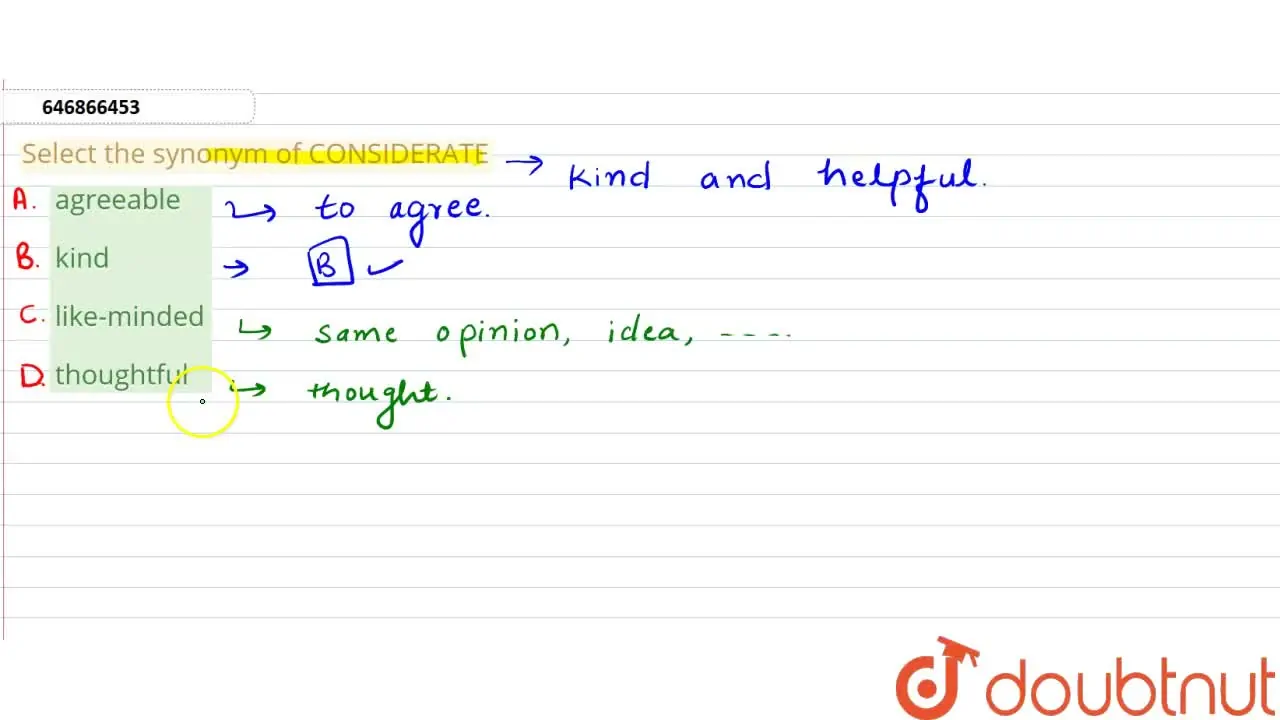 646866453
Select the synonym of CONSIDERATE → kind and helpful.
A. agreeable → to agree.
B. kind → B ✓
C. like-minded → same opinion, idea, ----
D. thoughtful → thought.
doubtnut